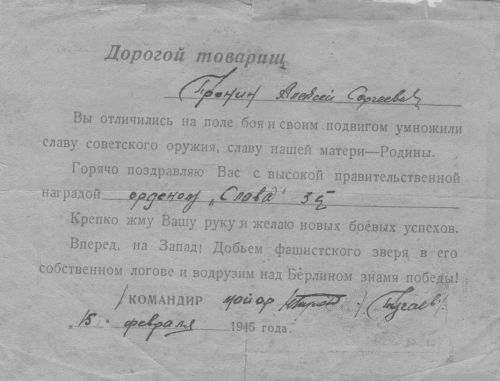 Дорогой товарищ
Пронин Алексей Сергеевич
Вы отличились на поле боя и своим подвигом умножили
славу советского оружия, славу нашей матери—Родины.
Горячо поздравляю Вас с высокой правительственной
наградой орденом „Слава" 3й
Крепко жму Вашу руку и желаю новых боевых успехов.
Вперед, на Запад! Добьем фашистского зверя в его
собственном логове и водрузим над Берлином знамя победы!
КОМАНДИР майор
15 февраля 1945 года.